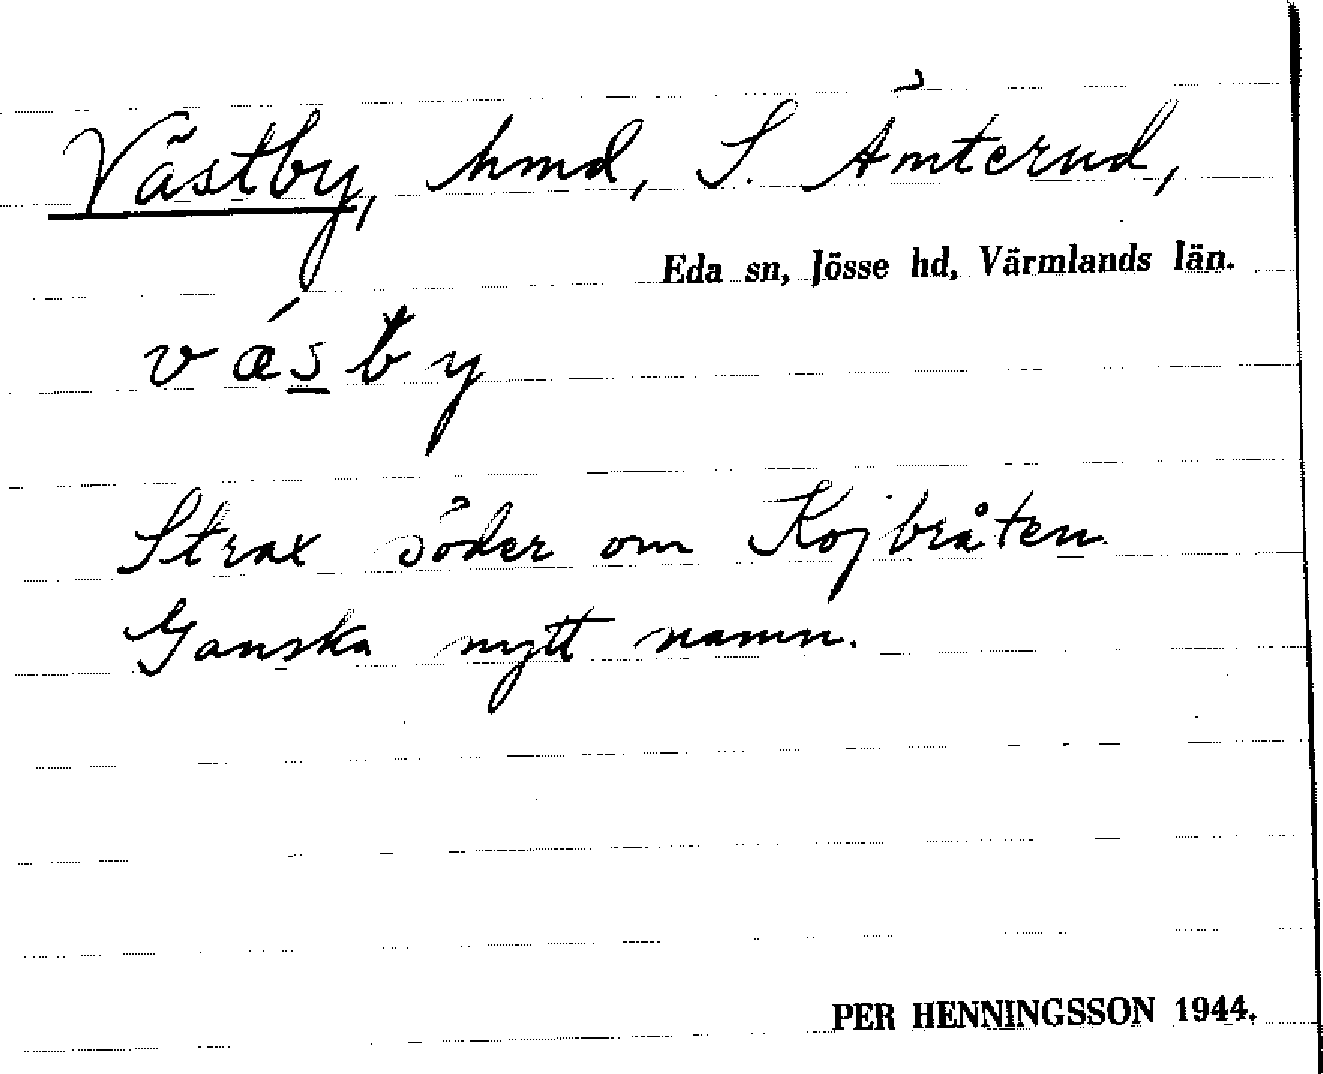 Västby, hmd, S. Åmterud,
Eda sn, Jösse hd, Värmlands län.
vǽsby
Strax söder om Kojbråten
Ganska nytt namn.
PER HENNINGSSON 1944.